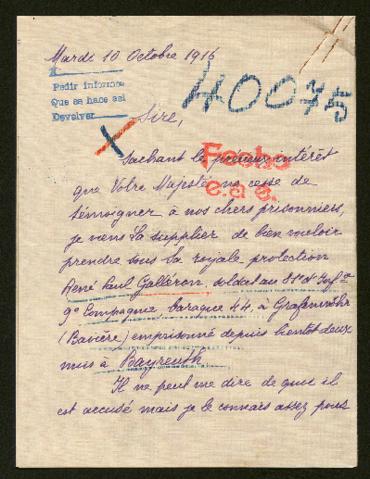 Mardi 10 Octobre 1916
40075
Pedir informes
Que se hace así
Devolver
Sire,
Fecho
Sachant le précieux intérêt
que Votre Majesté ne cesse de
témoigner à nos chers prisonniers,
je viens La supplier de bien vouloir
prendre sous la royale protection
René Paul Galléron, soldat au 81e d'Inf.
9e Compagnie, baraque 44, à Grafenwöhr
(Bavière) emprisonné depuis bientôt deux
mois à Bayreuth.
Il ne peut me dire de quoi il
est accusé mais je le connais assez pour